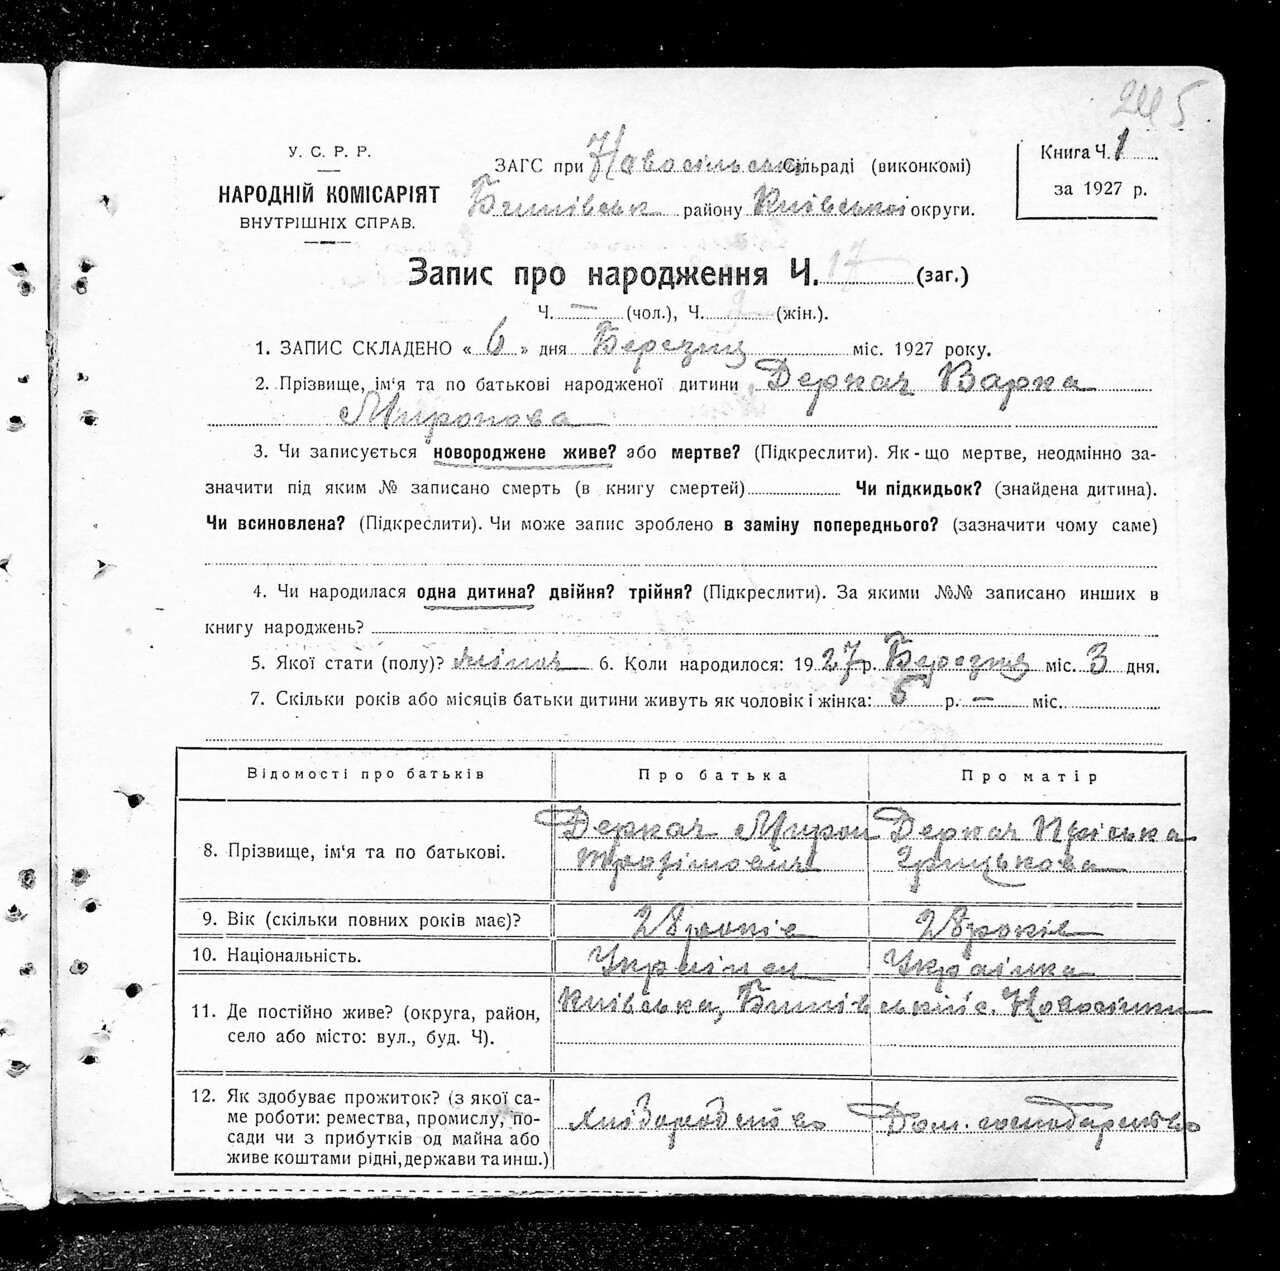 245
У. С. Р. Р.
НАРОДНІЙ КОМІСАРІЯТ
ВНУТРІШНІХ СПРАВ.
ЗАГС при Новосільськ. Сільраді (виконкомі)
Бишівськ району Київської округи.
Книга Ч. 1
за 1927 р.
Запис про народження Ч. 17 (заг.)
Ч. — (чол.), Ч. (жін.).
1. ЗАПИС СКЛАДЕНО « 6 » дня Березня міс. 1927 року.
2. Прізвище, ім'я та по батькові народженої дитини Деркач Варка
Миронова
3. Чи записується новороджене живе? або мертве? (Підкреслити). Як-що мертве, неодмінно за-
значити під яким № записано смерть (в книгу смертей) Чи підкидьок? (знайдена дитина).
Чи всиновлена? (Підкреслити). Чи може запис зроблено в заміну попереднього? (зазначити чому саме)
4. Чи народилася одна дитина? двійня? трійня? (Підкреслити). За якими №№ записано инших в
книгу народжень?
5. Якої стати (полу)? жіноч 6. Коли народилося: 1927 р. Березня міс. 3 дня.
7. Скільки років або місяців батьки дитини живуть як чоловік і жінка: 5 р. — міс.
Відомості про батьків Про батька Про матір
8. Прізвище, ім'я та по батькові. Деркач Мирон Деркач Пріська
Трохимович Грицькова
9. Вік (скільки повних років має)? 28 років 28 років
10. Національність. Українец Українка
11. Де постійно живе? (округа, район, Київська, Бишівський с. Новосілки
село або місто: вул., буд. Ч).
12. Як здобуває прожиток? (з якої са-
ме роботи: ремества, промислу, по-
сади чи з прибутків од майна або
живе коштами рідні, держави та инш.) хліборобство Дом. господарство